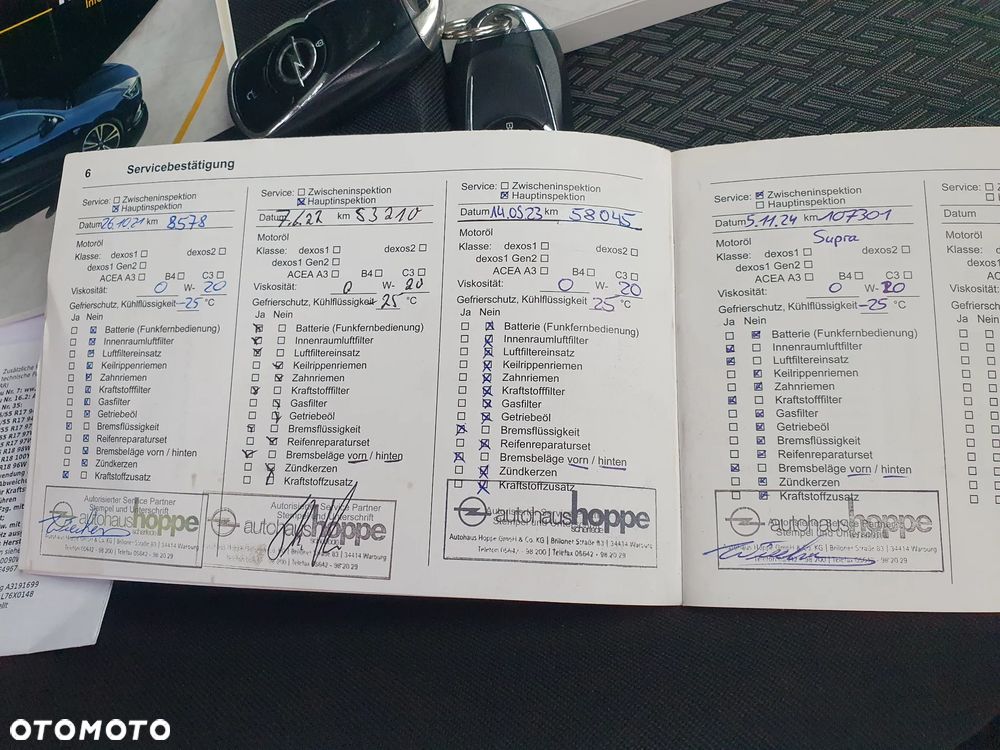 6 Servicebestätigung
Service: ☐ Zwischeninspektion
☒ Hauptinspektion
Datum 26.10.21 km 8578
Motoröl
Klasse: dexos1 ☐ dexos2 ☐
dexos1 Gen2 ☐
ACEA A3 ☐ B4 ☐ C3 ☐
Viskosität: 0 W- 20
Gefrierschutz, Kühlflüssigkeit -25 °C
Ja Nein
Batterie (Funkfernbedienung)
Innenraumluftfilter
Luftfiltereinsatz
Keilrippenriemen
Zahnriemen
Kraftstofffilter
Gasfilter
Getriebeöl
Bremsflüssigkeit
Reifenreparaturset
Bremsbeläge vorn / hinten
Zündkerzen
Kraftstoffzusatz
Autorisierter Service Partner
Stempel und Unterschrift
autohaus hoppe
Service: ☐ Zwischeninspektion
☒ Hauptinspektion
Datum 7.6.22 km 53210
Motoröl
Klasse: dexos1 ☐ dexos2 ☐
dexos1 Gen2 ☐
ACEA A3 ☐ B4 ☐ C3 ☐
Viskosität: 0 W- 20
Gefrierschutz, Kühlflüssigkeit -25 °C
Ja Nein
Batterie (Funkfernbedienung)
Innenraumluftfilter
Luftfiltereinsatz
Keilrippenriemen
Zahnriemen
Kraftstofffilter
Gasfilter
Getriebeöl
Bremsflüssigkeit
Reifenreparaturset
Bremsbeläge vorn / hinten
Zündkerzen
Kraftstoffzusatz
autohaus hoppe
Service: ☐ Zwischeninspektion
☒ Hauptinspektion
Datum 14.03.23 km 58045
Motoröl
Klasse: dexos1 ☐ dexos2 ☐
dexos1 Gen2 ☐
ACEA A3 ☐ B4 ☐ C3 ☐
Viskosität: 0 W- 20
Gefrierschutz, Kühlflüssigkeit 25 °C
Ja Nein
Batterie (Funkfernbedienung)
Innenraumluftfilter
Luftfiltereinsatz
Keilrippenriemen
Zahnriemen
Kraftstofffilter
Gasfilter
Getriebeöl
Bremsflüssigkeit
Reifenreparaturset
Bremsbeläge vorn / hinten
Zündkerzen
Kraftstoffzusatz
autohaus hoppe
Autohaus Hoppe GmbH & Co. KG | Briloner Straße 83 | 34414 Warburg
Telefon 05642 - 98 200 | Telefax 05642 - 98 20 29
Service: ☒ Zwischeninspektion
☐ Hauptinspektion
Datum 5.11.24 km 107301
Motoröl Supra
Klasse: dexos1 ☐ dexos2 ☐
dexos1 Gen2 ☐
ACEA A3 ☐ B4 ☐ C3 ☐
Viskosität: 0 W- 20
Gefrierschutz, Kühlflüssigkeit -25 °C
Ja Nein
Batterie (Funkfernbedienung)
Innenraumluftfilter
Luftfiltereinsatz
Keilrippenriemen
Zahnriemen
Kraftstofffilter
Gasfilter
Getriebeöl
Bremsflüssigkeit
Reifenreparaturset
Bremsbeläge vorn / hinten
Zündkerzen
Kraftstoffzusatz
autohaus hoppe
Service:
Datum
Motoröl
Klasse:
Viskosität:
Gefrierschutz
Ja Nein
OTOMOTO